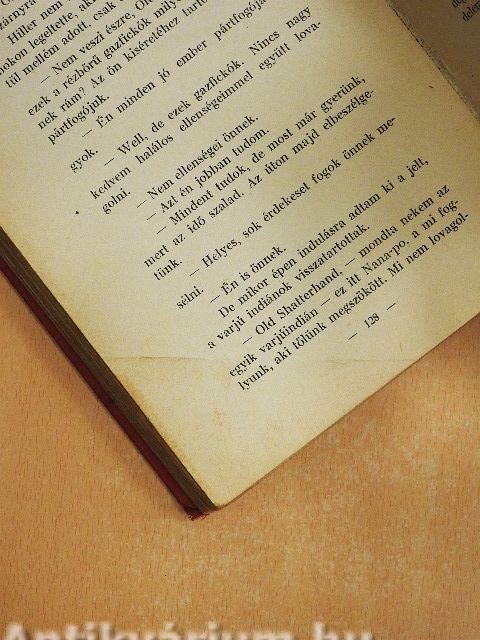 zárnyra
Hiller nem
nokon legeltette, aki
túl mellém adott csak
— Nem veszi észre, Ol
ezek a rézbőrű gazfickók mily
nek rán? Az ön kíséretéhez tarto
pártfogójuk.
— Én minden jó ember pártfogója
gyok.
— Well, de ezek gazfickók. Nincs nagy
kedvem halálos ellenségeimmel együtt lova-
golni.
— Nem ellenségei önnek.
— Azt én jobban tudom.
— Mindent tudok, de most már gyerünk,
mert az idő szalad. Az úton majd elbeszélge-
tünk.
— Helyes, sok érdekeset fogok önnek me-
sélni.
— Én is önnek.
De mikor épen indulásra adtam ki a jelt,
a varjú indiánok visszatartottak.
— Old Shatterhand, — mondta nekem az
egyik varjúindián — ez itt Nana-po, a mi fog-
lyunk, aki tőlünk megszökött. Mi nem lovagol-
— 128 —
Antikvárium.hu